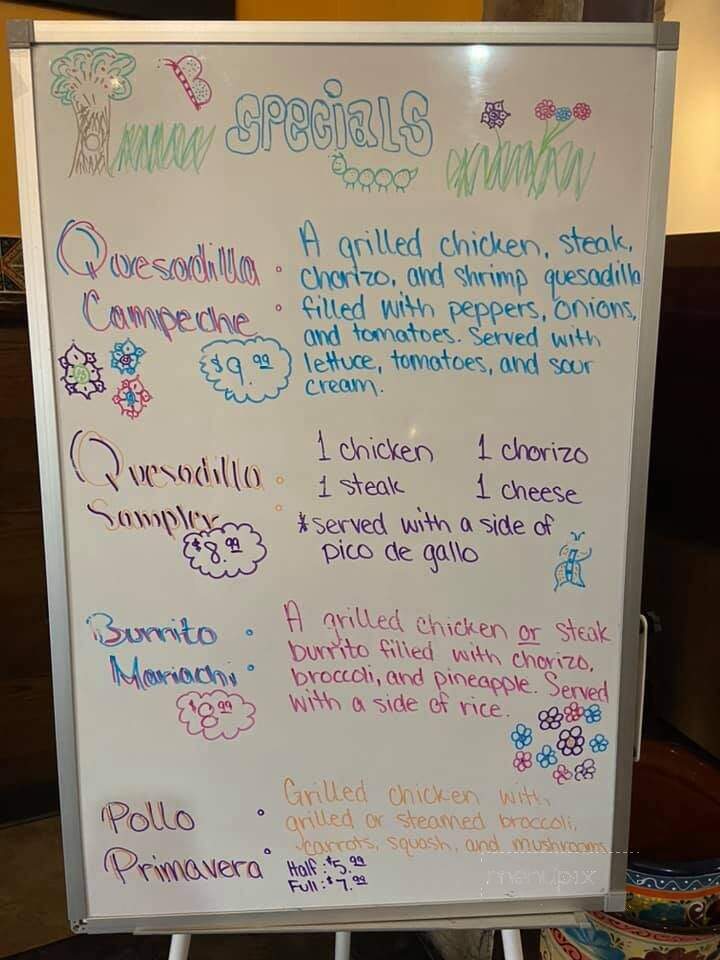 SPECIALS
Quesadilla :
Campeche
$9.99
A grilled chicken, steak,
chorizo, and shrimp quesadilla
filled with peppers, onions,
and tomatoes. Served with
lettuce, tomatoes, and sour
cream.
Quesadilla :
Sampler
$8.99
1 chicken 1 chorizo
1 steak 1 cheese
*served with a side of
pico de gallo
Burrito :
Mariachi
$8.99
A grilled chicken or steak
burrito filled with chorizo,
broccoli, and pineapple. Served
with a side of rice.
Pollo :
Primavera
Grilled chicken with
grilled or steamed broccoli,
carrots, squash, and mushrooms
Half: $5.99
Full: $7.99
menupix